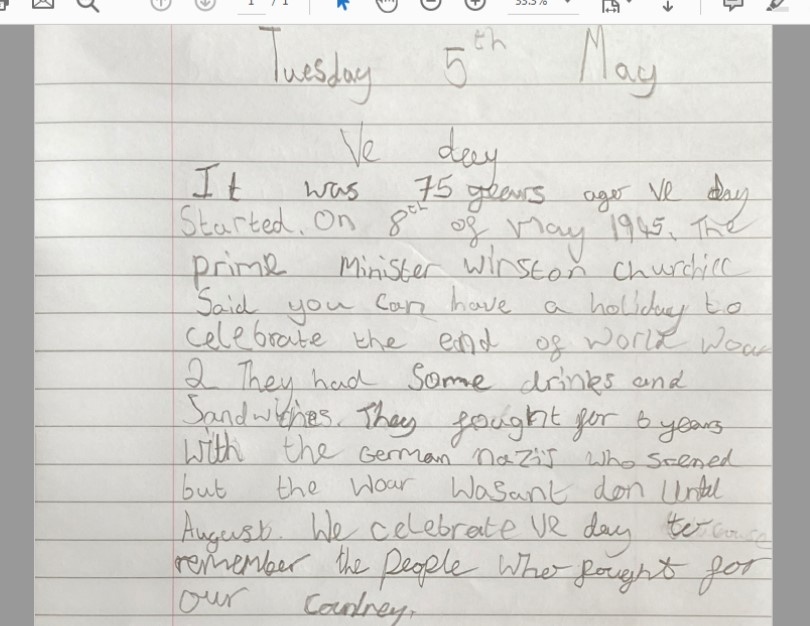 1 / 1 33.3%
Tuesday 5th May
Ve day
It was 75 years ago ve day
Started. On 8th of may 1945. The
prime Minister winston churchill
Said you can have a holiday to
celebrate the end of world woar
2 They had Some drinks and
Sandwiches. They fought for 6 years
with the German nazi's who
but the woar wasant don Until
August. We celebrate VE day to
remember the people who fought for
our Countrey.